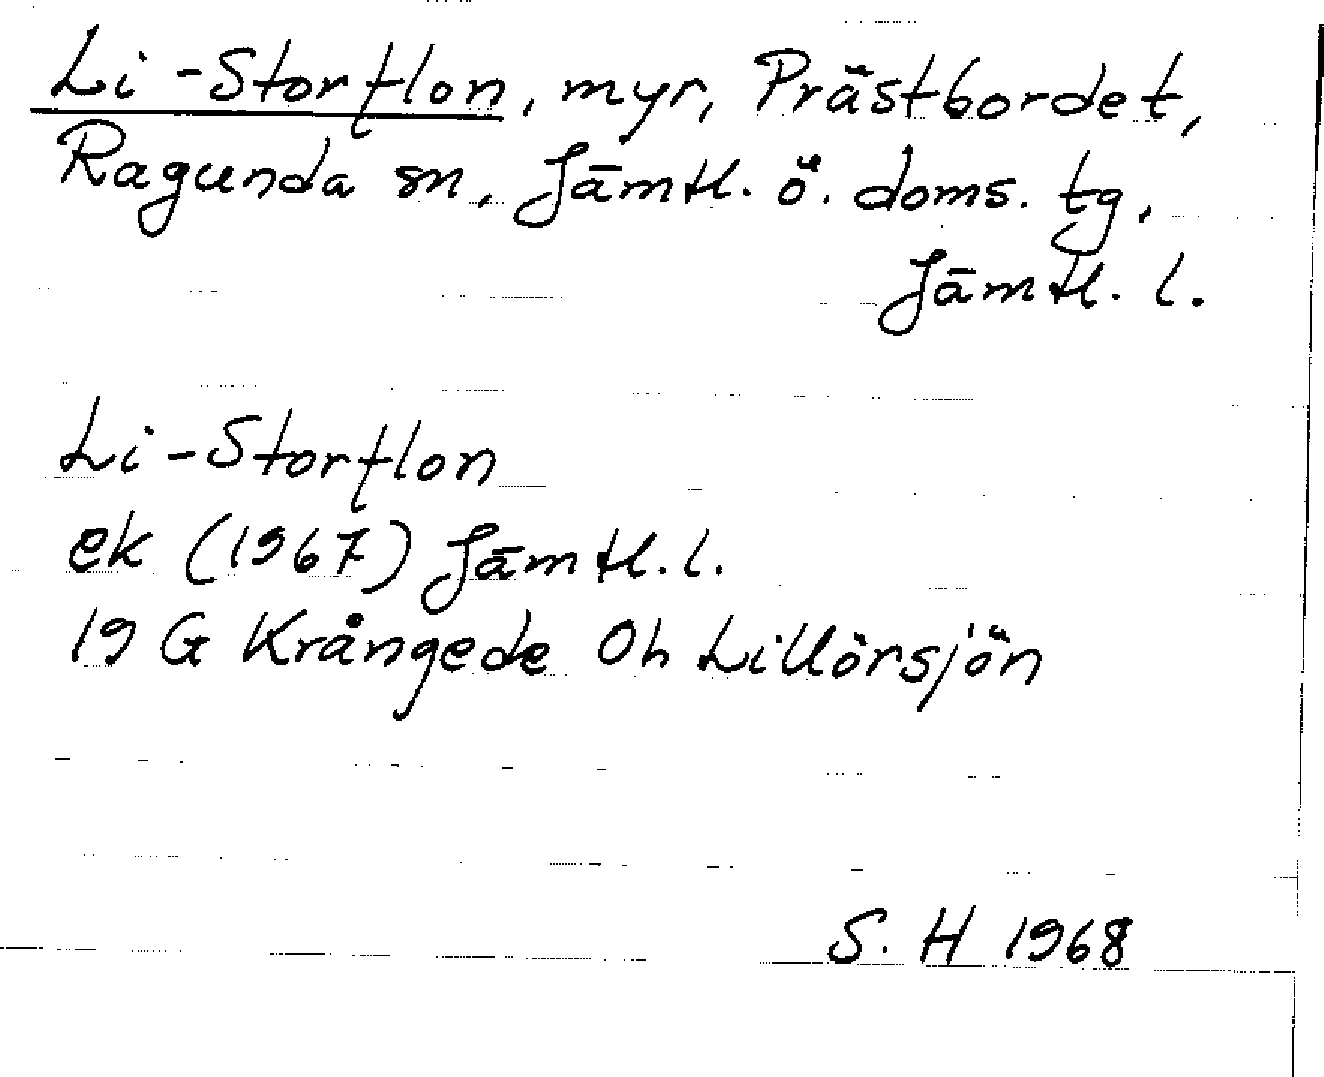 Li-Storflon, myr, Prästbordet,
Ragunda sn, Jämtl. ö. doms. tg,
Jämtl. l.
Li-Storflon
ek (1967) Jämtl. l.
19 G Krångede 0h Lillörsjön
S. H 1968